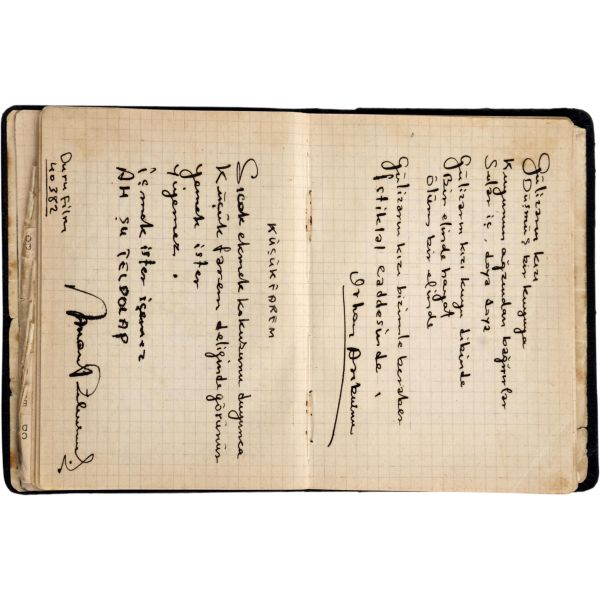 Gülizarın kızı
Düşmüş bir kuyuya
Kuyunun ağzından bağırırlar
Sular iç, doya doya
Gülizarın kızı kuyu dibinde
Bir elinde hayat
Ölüm bir elinde
Gülizarın kızı bizimle beraber
İstiklâl caddesinde,
Orhan Arıburnu
KÜÇÜK FAREM
Sıcak ekmek kokusunu duyunca
Küçük farem deliğinde görünür
Yemek ister
Yiyemez,
içmek ister içemez
AH ŞU TELDOLAP
Duru Film
40382